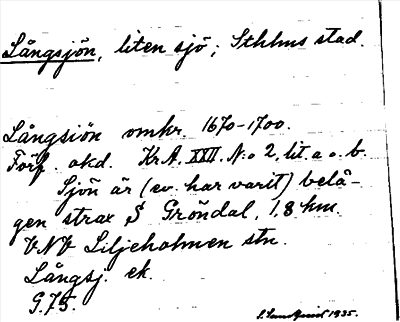 Långsjön, liten sjö; Sthlms stad.
Långsiön omkr. 1670-1700.
Förf. okd. Kr.A. XXII. N:o 2, lit. a o. b.
Sjön är (ev. har varit) belä-
gen strax S Gröndal, 1,8 km.
VNV Liljeholmen stn.
Långsj. ek.
G.75.
1935.